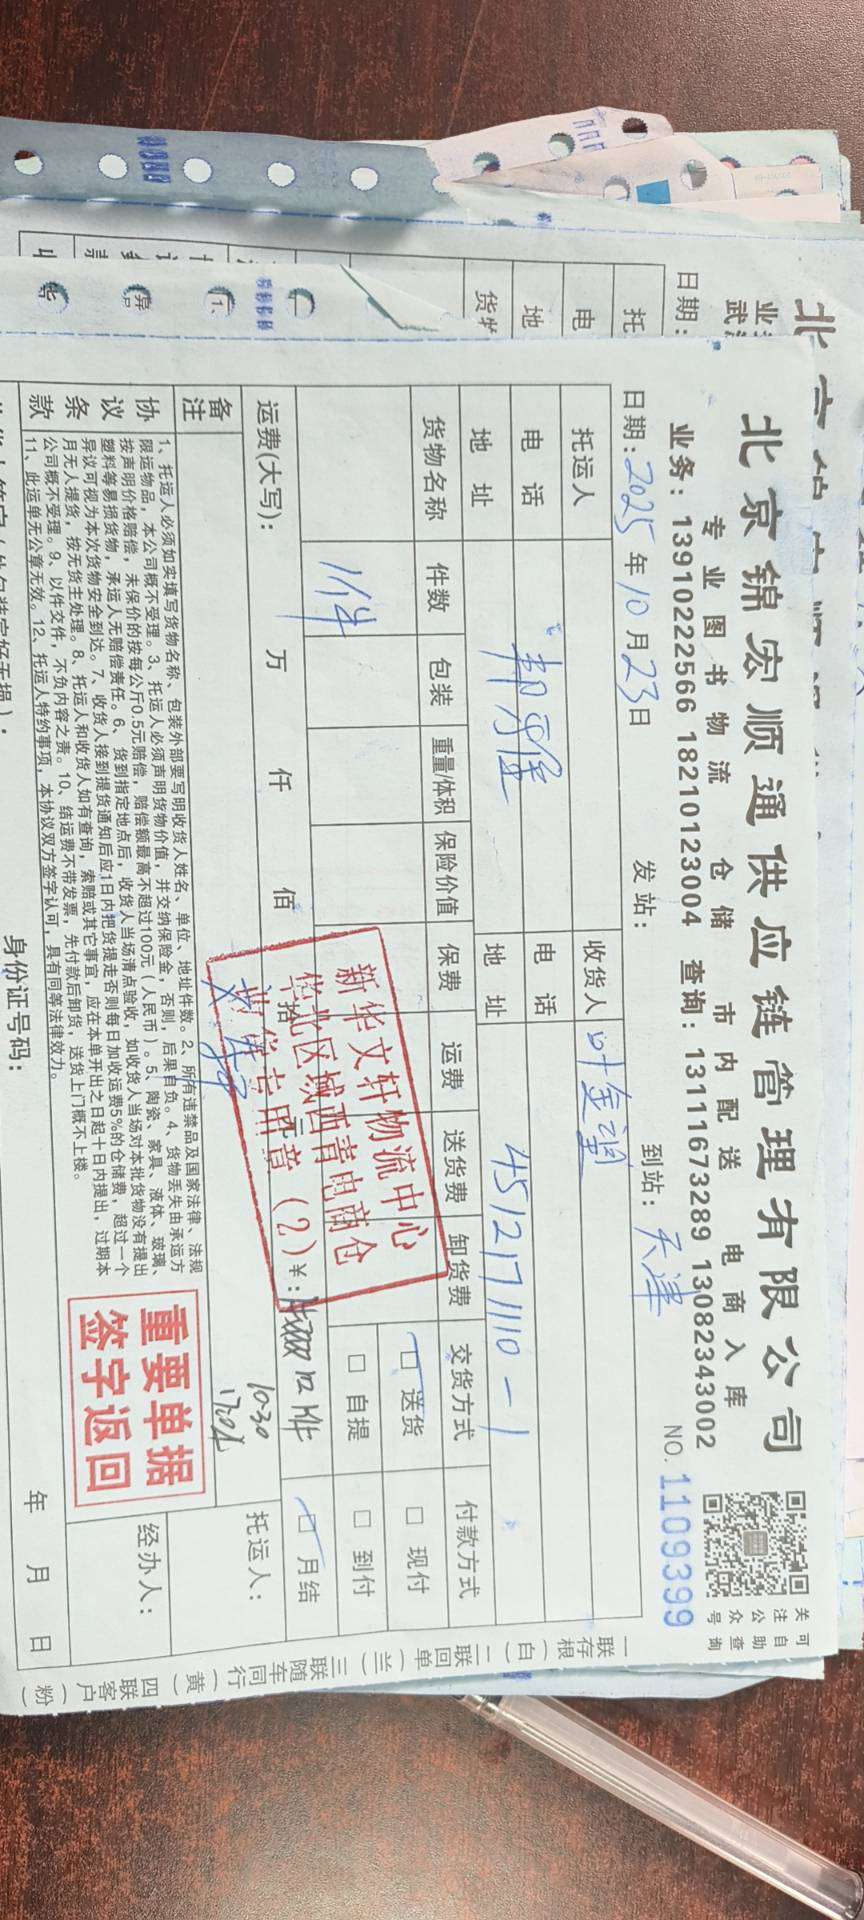 北京锦宏顺通供应链管理有限公司
专业图书物流 仓储 市内配送 电商入库
业务：13910222566 18210123004 查询：13111673289 13082343002
关注公众号
可自助查询
日期：2025年10月23日 发站： 到站：天津 NO. 1109399
托运人 收货人 叶金弼
电话 电话
地址 地址 4512171110-1
货物名称 件数 包装 重量/体积 保险价值 保费 运费 送货费 卸货费 交货方式 付款方式
11件 □送货 □现付
□自提 □到付
运费(大写)： 万 仟 佰 拾 元 ¥： □月结
新华文轩物流中心
华北区域西青电商仓
收货专用章（2）
备注
10-30
托运人：
协议条款
1、托运人必须如实填写货物名称、包装外部要写明收货人姓名、单位、地址件数。2、所有违禁品及国家法律、法规
限运物品，本公司概不受理。3、托运人必须声明货物价值，并交纳保险金，否则，后果自负。4、货物丢失由承运方
按声明价格赔偿，未保价的按每公斤0.5元赔偿，赔偿额最高不超过100元（人民币）。5、陶瓷、家具、液体、玻璃、
塑料等易损货物，承运人无赔偿责任。6、货到指定地点后，收货人当场清点验收，如收货人当场对本批货物没有提出
异议可视为本次货物安全到达。7、收货人接到提货通知后应1日内把货提走否则每日加收运费5%的仓储费，超过一个
月无人提货，按无货主处理。8、托运人和收货人如有查询，索赔或其它事宜，应在本单开出之日起十日内提出，过期本
公司概不受理。9、以件交件，不负内容之责。10、结运费不带发票，先付款后卸货，送货上门概不上楼。
11、此运单无公章无效。12、托运人特约事项，本协议双方签字认可，具有同等法律效力。
重要单据
签字返回
经办人：
身份证号码： 年 月 日
一联存根（白）二联回单（兰）三联随车同行（黄）四联客户（粉）